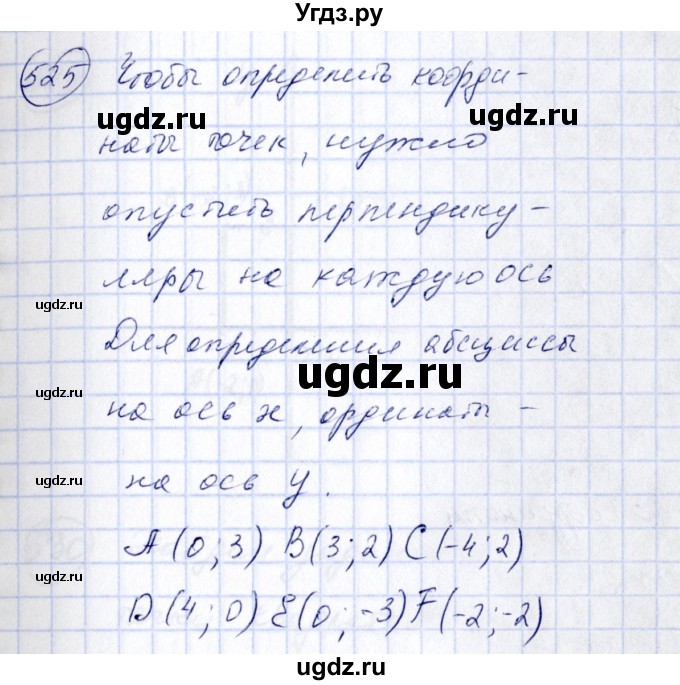 Угдз.ру
525 Чтобы определить коорди-
ugdz.ru ugdz.ru
наты точек, нужно
опустить перпендику-
ugdz.ru
ляры на каждую ось
ugdz.ru
Для определения абсциссы
ugdz.ru ugdz.ru
на ось х, ординаты -
на ось y.
ugdz.ru ugdz.ru
A(0;3) B(3;2) C(-4;2)
ugdz.ru
D(4;0) E(0;-3) F(-2;-2)
ugdz.ru ugdz.ru